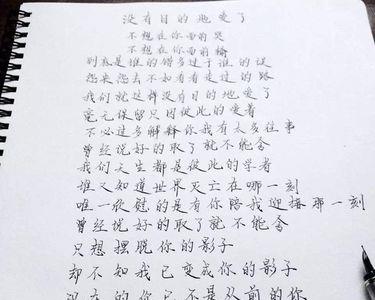 没有目的地爱了
不想在你面前哭
不想在你面前输
别衣是谁的错多过于谁的误
怨来怨去不如看看走过的路
我们就这样没有目的地爱了
毫无保留只因彼此的爱着
不必过多解释你我有太多往事
曾经说好的取了就不能舍
我们天生都是彼此的学者
谁又知道世界灭亡在哪一刻
唯一欣慰的是有你陪我迎接那一刻
曾经说好的取了就不能舍
只想摆脱你的影子
却不知我已变成你的影子
现在的你已不是从前的你